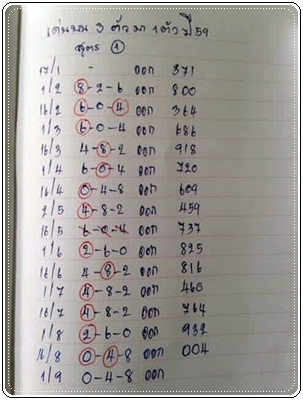 เด่นบน 3 ตัวมา 1 ตัว ปี 59
สูตร ①
17/1 - ออก 371
1/2 8-2-6 ออก 800
16/2 6-0-4 ออก 364
1/3 6-0-4 ออก 686
16/3 4-8-2 ออก 918
1/4 6-0-4 ออก 720
16/4 0-4-8 ออก 609
2/5 4-8-2 ออก 459
16/5 6-0-4 ออก 737
1/6 2-6-0 ออก 825
16/6 4-8-2 ออก 816
1/7 4-8-2 ออก 460
16/7 4-8-2 ออก 764
1/8 2-6-0 ออก 932
16/8 0-4-8 ออก 004
1/9 0-4-8 ออก